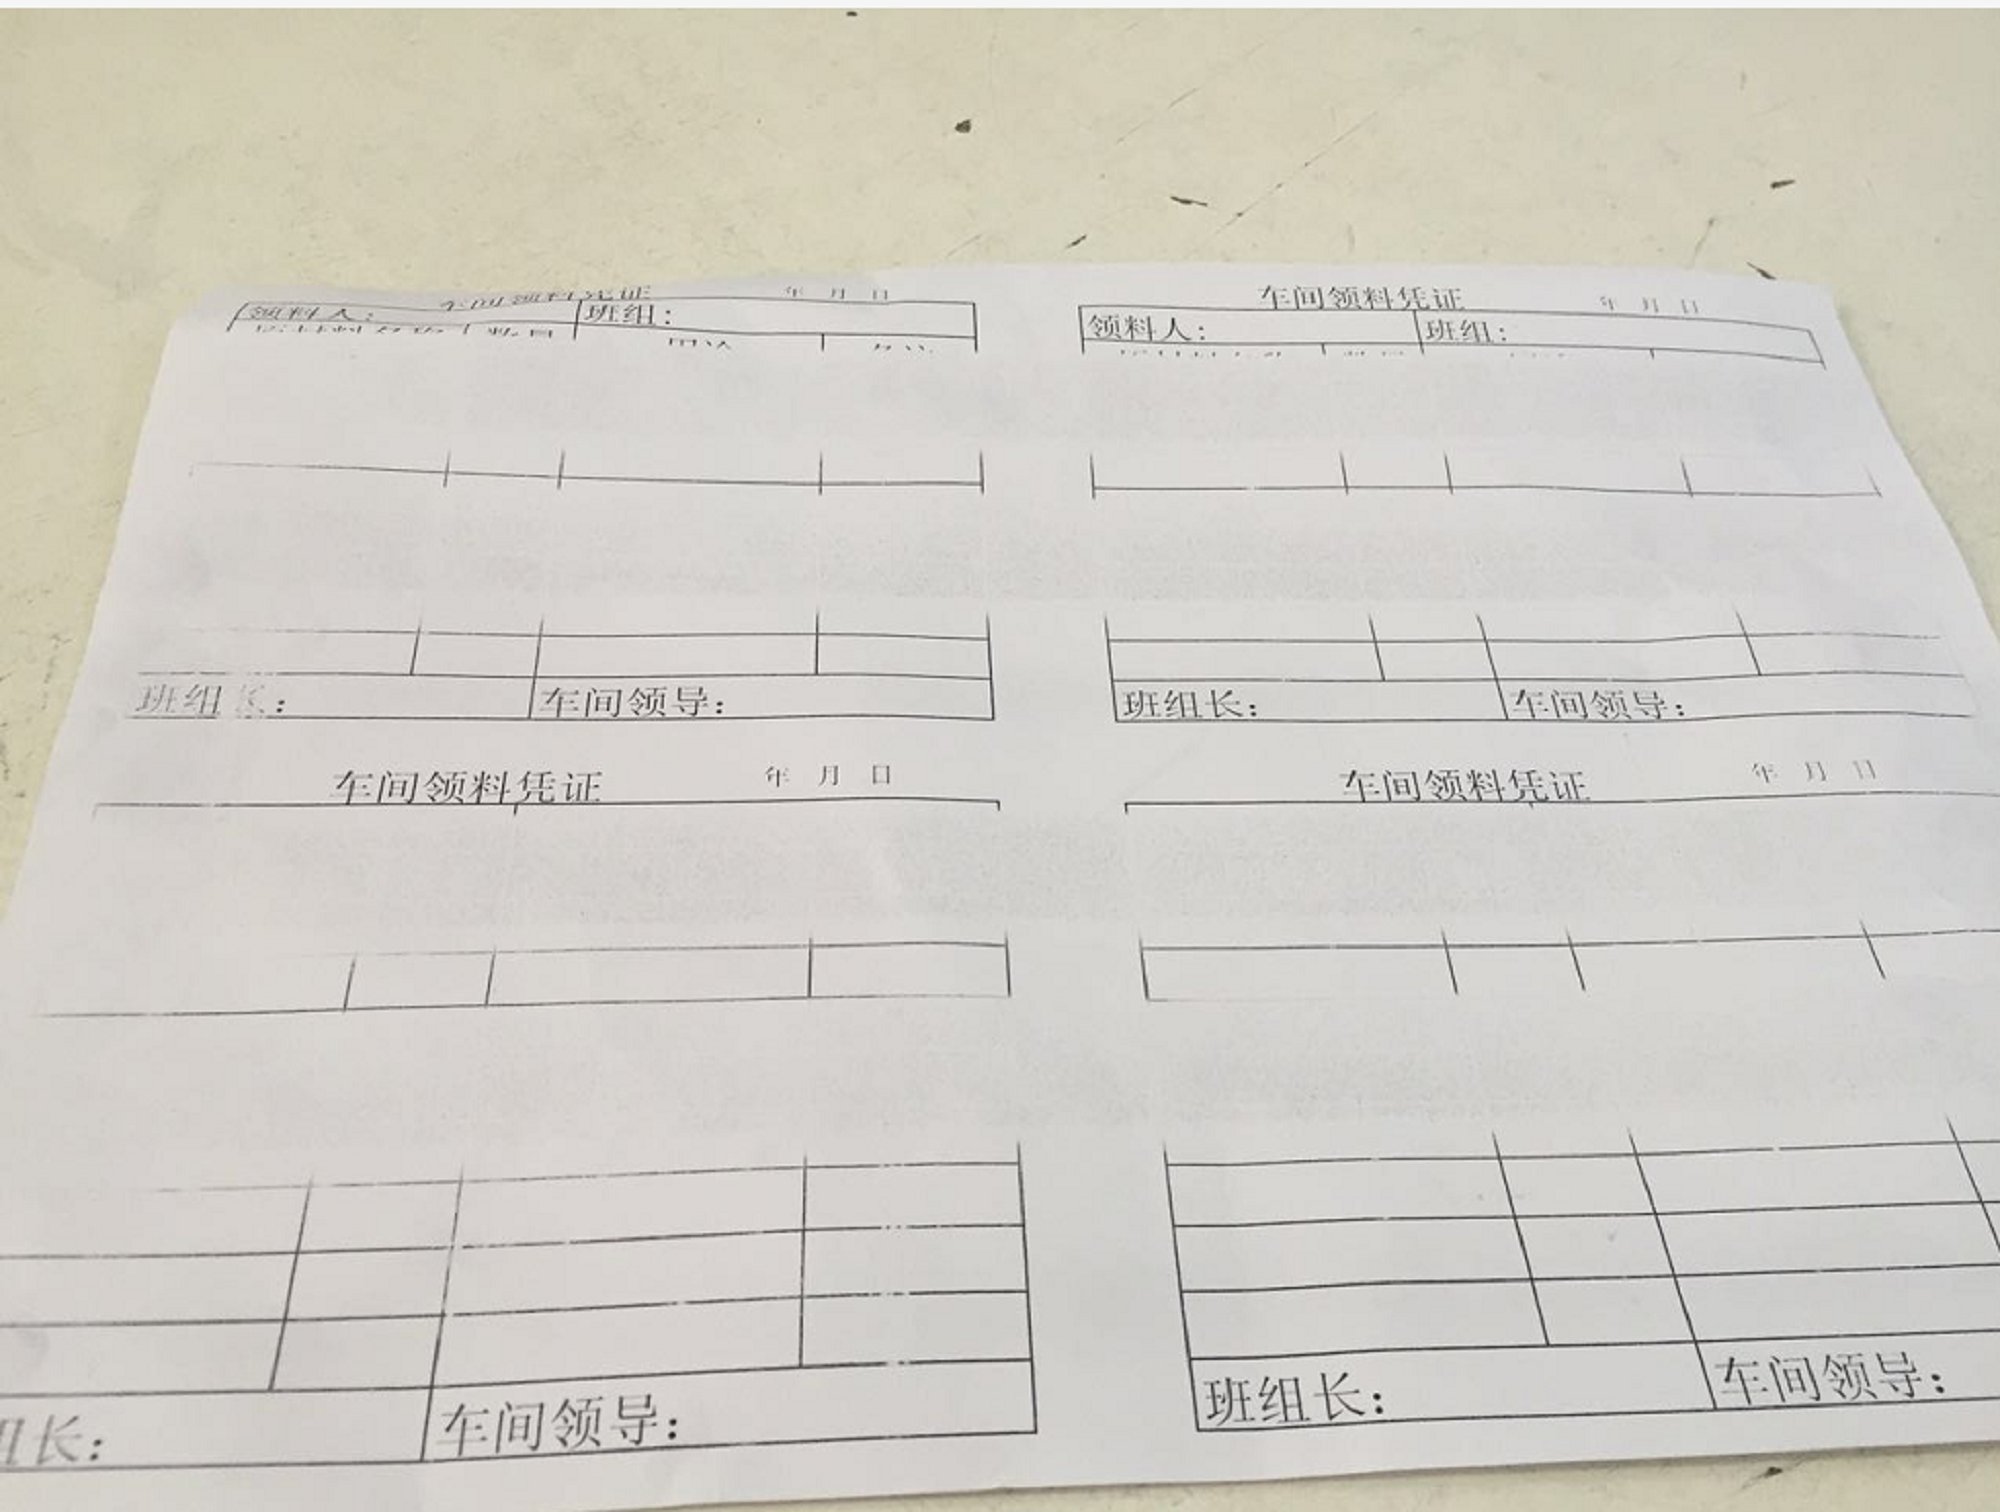 车间领料凭证 年 月 日
领料人： 班组：
车间领料凭证 年 月 日
领料人： 班组：
班组长： 车间领导：
班组长： 车间领导：
车间领料凭证 年 月 日
车间领料凭证 年 月 日
组长： 车间领导：
班组长： 车间领导：